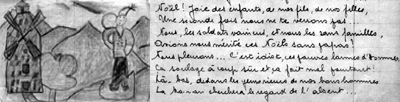 Noël ! Joie des enfants, de nos fils, de nos filles,
Une seconde fois nous ne te verrons pas
Nous, les soldats vaincus, et nous les sans familles,
Avions nous mérité ces Noëls sans papas ?
Nous pleurons... C'est idiot, ces pauvres larmes d'hommes
Ça soulage à coup sûr et ça fait mal pourtant !
Là-bas, dedans les yeux de nos bons hommes
La maman cherchera le regard de l'absent...